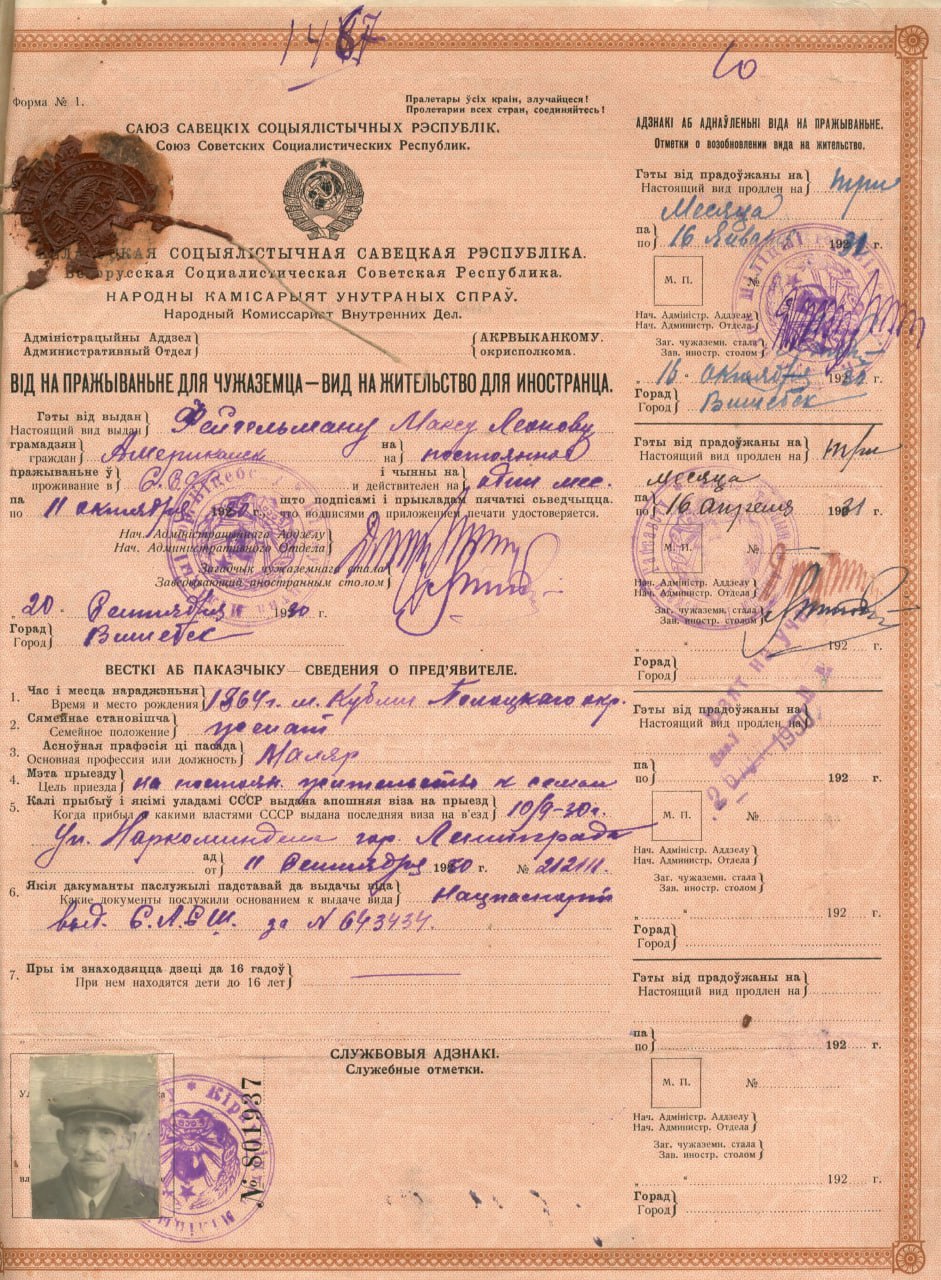 1487
10
Форма № 1.
Пралетары ўсіх краін, злучайцеся!
Пролетарии всех стран, соединяйтесь!
САЮЗ САВЕЦКІХ СОЦЫЯЛІСТЫЧНЫХ РЭСПУБЛІК.
Союз Советских Социалистических Республик.
СОЦЫЯЛІСТЫЧНАЯ САВЕЦКАЯ РЭСПУБЛІКА.
Белорусская Социалистическая Советская Республика.
НАРОДНЫ КАМІСАРЫЯТ УНУТРАНЫХ СПРАЎ.
Народный Комиссариат Внутренних Дел.
Адміністрацыйны Аддзел
Административный Отдел
АКРВЫКАНКОМУ.
окрисполкома.
ВІД НА ПРАЖЫВАНЬНЕ ДЛЯ ЧУЖАЗЕМЦА — ВИД НА ЖИТЕЛЬСТВО ДЛЯ ИНОСТРАНЦА.
Гэты від выдан
Настоящий вид выдан Фейгельману Максу Леонову
грамадзян на
граждан Американск на постоянное
пражываньне ў і чынны на
проживание в и действителен на один мес.
па што подпісамі і прыкладам пячаткі сьведчыцца.
по 11 октября 1930 г. что подписями и приложением печати удостоверяется.
Нач. Адміністрацыйнага Аддзелу
Нач. Административного Отдела
Загадчык чужаземнага стала
Заведывающий иностранным столом
„20" Сентября 1930 г.
Горад
Город Витебск
ВЕСТКІ АБ ПАКАЗЧЫКУ — СВЕДЕНИЯ О ПРЕД'ЯВИТЕЛЕ.
1. Час і месца нараджэньня
Время и место рождения 1864 г. м. Кубличи Полоцкого окр.
2. Сямейнае становішча
Семейное положение женат
3. Асноўная прафэсія ці пасада
Основная профессия или должность Маляр
4. Мэта прыезду
Цель приезда на постоян. жительство к семьи
5. Калі прыбыў і якімі уладамі СССР выдана апошняя віза на прыезд
Когда прибыл и какими властями СССР выдана последняя виза на в'езд 10/9-30 г.
Уп. Наркоминдел гор. Ленинграда
ад
от 11 Сентября 1930 г. № 212111.
6. Якія дакуманты паслужылі падставай да выдачы віда
Какие документы послужили основанием к выдаче вида Нацпаспорт
выд. С.А.С.Ш. за № 643434.
7. Пры ім знаходзяцца дзеці да 16 гадоў
При нем находятся дети до 16 лет
СЛУЖБОВЫЯ АДЗНАКІ.
Служебные отметки.
№ 801937
АДЗНАКІ АБ АДНАЎЛЕНЬНІ ВІДА НА ПРАЖЫВАНЬНЕ.
Отметки о возобновлении вида на жительство.
Гэты від прадоўжаны на
Настоящий вид продлен на три
Месяца
па
по 16 Января 1931 г.
М. П. №
Нач. Адміністр. Аддзелу
Нач. Администр. Отдела
Заг. чужаземн. стала
Зав. иностр. столом
„16" октября 1930 г.
Горад
Город Витебск
Гэты від прадоўжаны на
Настоящий вид продлен на три
месяца
па
по 16 апреля 1931 г.
М. П. №
Нач. Адміністр. Аддзелу
Нач. Администр. Отдела
Заг. чужаземн. стала
Зав. иностр. столом
„ " 192 г.
Горад
Город
Гэты від прадоўжаны на
Настоящий вид продлен на
па
по 192 г.
М. П. №
Нач. Адміністр. Аддзелу
Нач. Администр. Отдела
Заг. чужаземн. стала
Зав. иностр. столом
„ " 192 г.
Горад
Город
Гэты від прадоўжаны на
Настоящий вид продлен на
па
по 192 г.
М. П. №
Нач. Адміністр. Аддзелу
Нач. Администр. Отдела
Заг. чужаземн. стала
Зав. иностр. столом
„ " 192 г.
Горад
Город